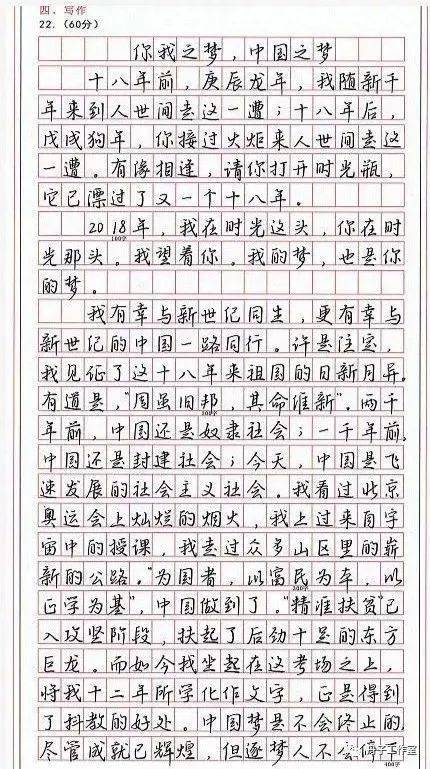 四、写作
22．（60分）
你我之梦，中国之梦
十八年前，庚辰龙年，我随新千
年来到人世间走这一遭；十八年后，
戊戌狗年，你接过火炬来人世间走这
一遭。有缘相逢，请你打开时光瓶，
它已漂过了又一个十八年。
2018年，我在时光这头，你在时
100字
光那头。我望着你。我的梦，也是你
的梦。
我有幸与新世纪同生，更有幸与
新世纪的中国一路同行。许是注定，
我见证了这十八年来祖国的日新月异。
有道是，“周虽旧邦，其命维新”。两千
200字
年前，中国还是奴隶社会；一千年前，
中国还是封建社会；今天，中国是飞
速发展的社会主义社会。我看过北京
奥运会上灿烂的烟火，我上过来自宇
宙中的授课，我走过众多山区里的崭
新的公路。“为国者，以富民为本，以
300字
正学为基”，中国做到了。“精准扶贫”已
入攻坚阶段，扶起了后劲十足的东方
巨龙。而如今我坐起在这考场之上，
将我十二年所学化作文字，正是得到
了科教的好处。中国梦是不会终止的，
尽管成就已辉煌，但逐梦人不会停下
400字